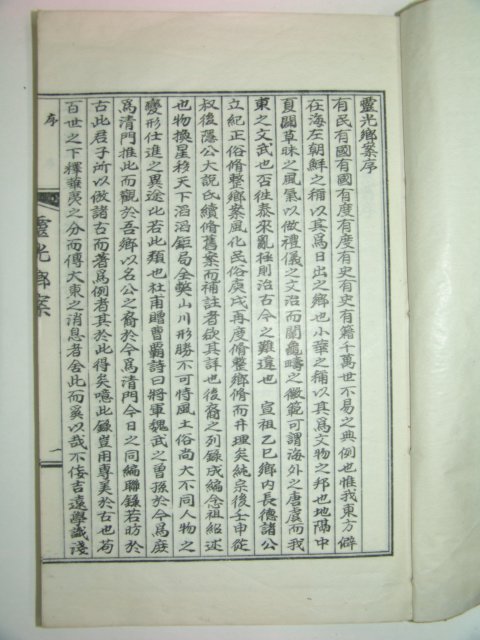 靈光鄕案序
有民有國有國有度有度有史有史有籍千萬世不易之典例也惟我東方僻
在海左朝鮮之稱以其爲日出之鄕也小華之稱以其爲文物之邦也地隔中
夏闢草昧之風氣以做禮儀之文治而闡龜疇之徽範可謂海外之唐虞而我
東之文武也否往泰來亂極則治古今之難違也 宣祖乙巳鄕內長德諸公
立紀正俗脩整鄕案風化民俗庚戌再度脩整鄕脩而井理矣純宗後壬申從
叔後隱公大說氏續脩舊案而補註者欲其詳也後裔之列錄成編念祖紹述
也物換星移天下滔滔鉅局全擎山川形勝不可恃風土俗尚大不同人物之
變形仕進之異途比若此類也杜甫贈曹霸詩曰將軍魏武之曾孫於今爲庶
爲清門推此而觀於吾鄕以名公之裔於今爲清門今日之同編聯錄若昉於
古此君子所以倣諸古而著爲例者其於此得矣噫此錄豈用專美於古也苟
百世之下釋華夷之分而傳大東之消息者舍此而奚以哉不侫吉遠學識淺
序
靈光鄕案
一